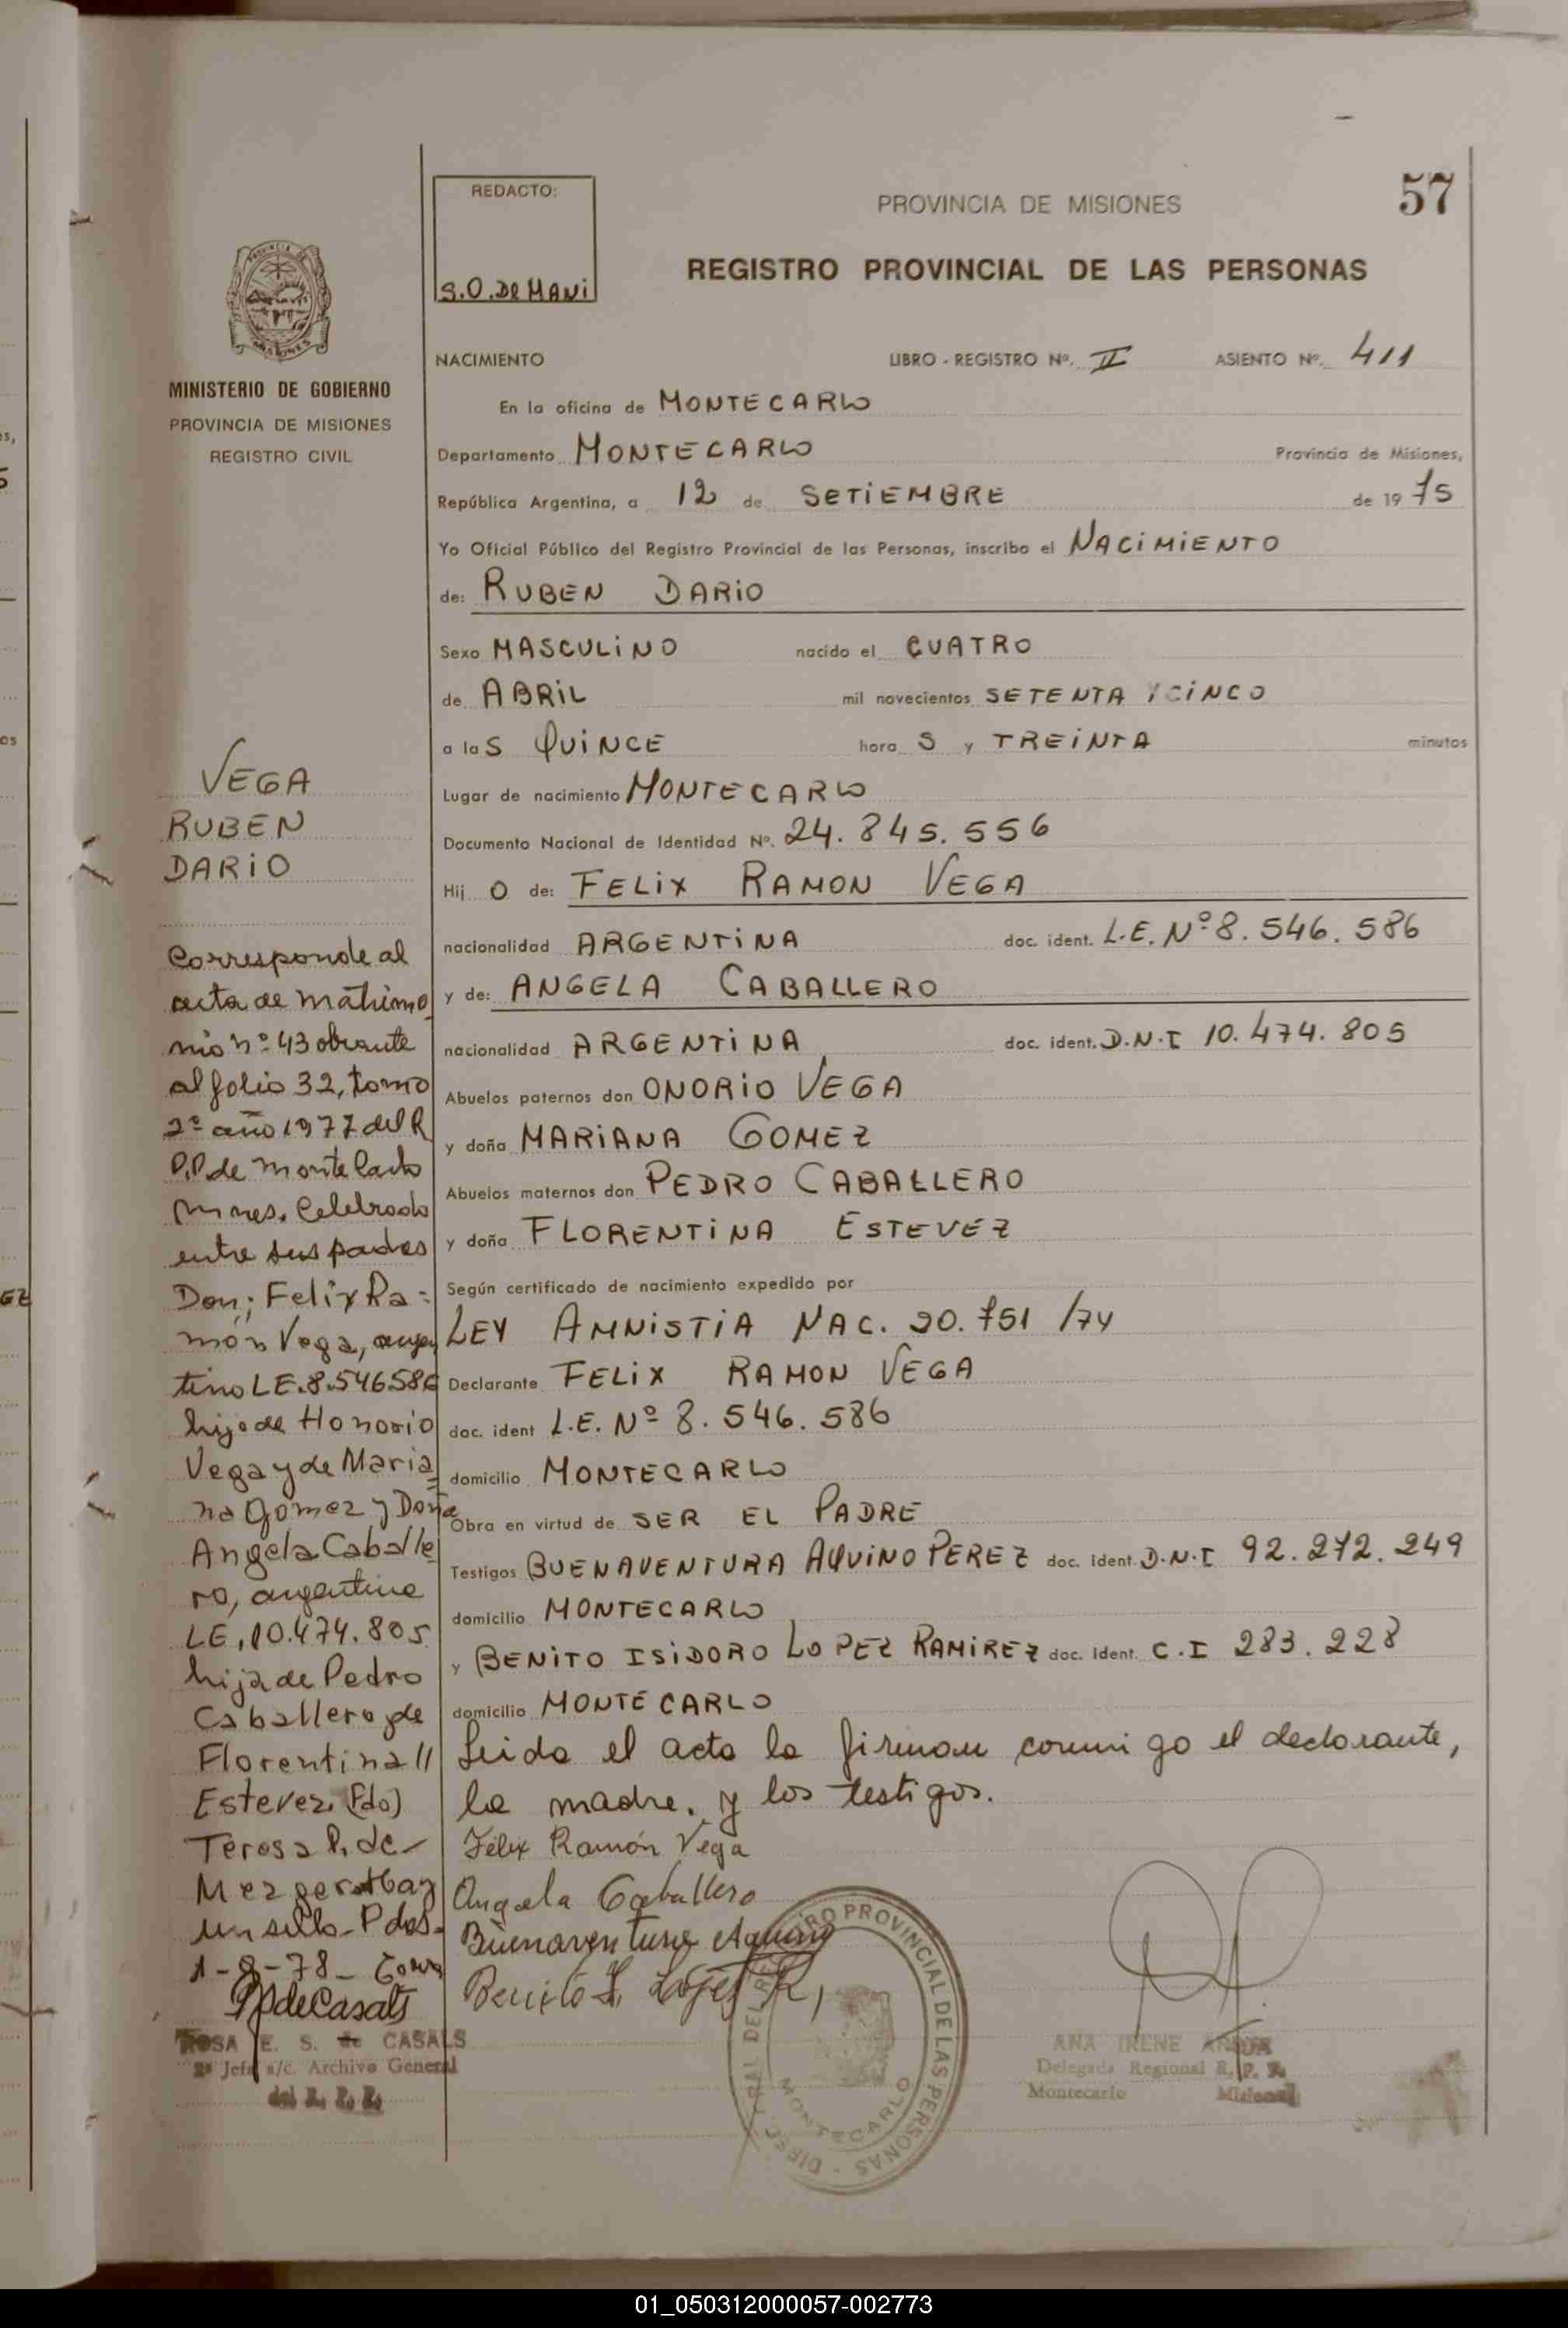 57
REDACTO:
S.O. De MANi
PROVINCIA DE MISIONES
REGISTRO PROVINCIAL DE LAS PERSONAS
MINISTERIO DE GOBIERNO
PROVINCIA DE MISIONES
REGISTRO CIVIL
NACIMIENTO LIBRO - REGISTRO Nº. II ASIENTO Nº. 411
En la oficina de MONTECARLO
Departamento MONTECARLO Provincia de Misiones,
República Argentina, a 12 de SETIEMBRE de 1975
Yo Oficial Público del Registro Provincial de las Personas, inscribo el NACIMIENTO
de: RUBEN DARIO
Sexo MASCULINO nacido el CUATRO
de ABRIL mil novecientos SETENTA Y CINCO
a las QUINCE horas y TREINTA minutos
Lugar de nacimiento MONTECARLO
Documento Nacional de Identidad Nº. 24.845.556
Hijo de: FELIX RAMON VEGA
nacionalidad ARGENTINA doc. ident. L.E. Nº 8.546.586
y de: ANGELA CABALLERO
nacionalidad ARGENTINA doc. ident. D.N.I 10.474.805
Abuelos paternos don ONORIO VEGA
y doña MARIANA GOMEZ
Abuelos maternos don PEDRO CABALLERO
y doña FLORENTINA ESTEVEZ
Según certificado de nacimiento expedido por
LEY AMNISTIA NAC. 20.751 /74
Declarante FELIX RAMON VEGA
doc. ident L.E. Nº 8.546.586
domicilio MONTECARLO
Obra en virtud de SER EL PADRE
Testigos BUENAVENTURA AQUINO PEREZ doc. ident. D.N.I 92.272.249
domicilio MONTECARLO
y BENITO ISIDORO LOPEZ RAMIREZ doc. ident. C.I 283.228
domicilio MONTECARLO
Leida el acta la firman conmigo el declarante,
la madre, y los testigos.
Félix Ramón Vega
Angela Caballero
Buenaventura Aquino
Benito I. Lopez R,
VEGA
RUBEN
DARIO
Corresponde al
acta de matrimo
nio nº 43 obrante
al folio 32, tomo
2º año 1977 del R
P.P de Montecarlo
Mnes. Celebrado
entre sus padres
Don; Felix Ra=
món Vega, argen
tino LE.8.546586
hijo de Honorio
Vega y de Maria=
na Gomez y Doña
Angela Caballe
ro, argentina
LE, 10.474.805
hija de Pedro
Caballero y de
Florentina //
Estevez. (Fdo)
Teresa P. de
Mezger Hay
un sello - Pdas.
1-8-78-
ROSA E. S. de CASALS
2ª Jefa a/c. Archivo General
del R. P. P.
DIREC. GRAL DEL REGISTRO PROVINCIAL DE LAS PERSONAS -
MONTECARLO
ANA IRENE
Delegada Regional R. P. P.
Montecarlo Misiones
01_050312000057-002773